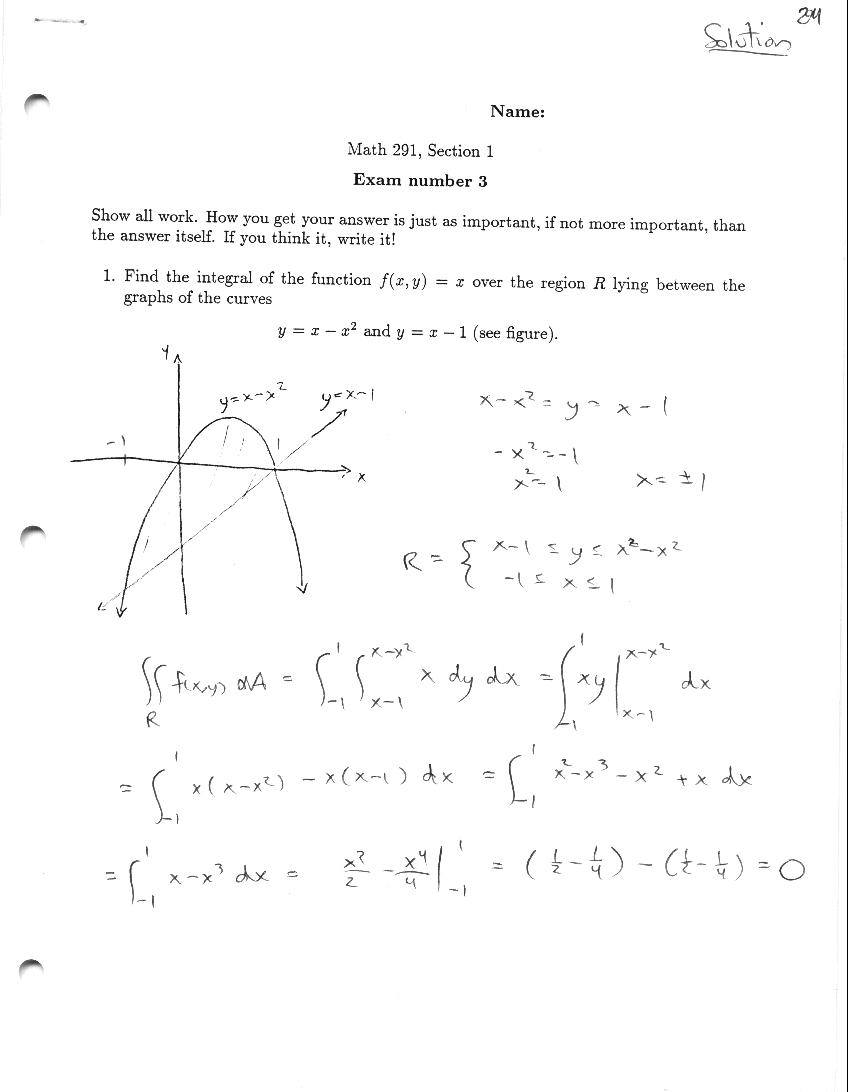 294
Solution
Name:
Math 291, Section 1
Exam number 3
Show all work. How you get your answer is just as important, if not more important, than
the answer itself. If you think it, write it!
1. Find the integral of the function f(x, y) = x over the region R lying between the
graphs of the curves
y = x − x² and y = x − 1 (see figure).
y
y=x-x²
y=x-1
-1
1
x
x-x² = y = x-1
-x²=-1
x²=1 x=±1
R = { x-1 ≤ y ≤ x²-x²
-1 ≤ x ≤ 1
∬_R f(x,y) dA = ∫_{-1}^{1} ∫_{x-1}^{x-x²} x dy dx = ∫_{-1}^{1} xy |_{x-1}^{x-x²} dx
= ∫_{-1}^{1} x(x-x²) - x(x-1) dx = ∫_{-1}^{1} x²-x³-x²+x dx
= ∫_{-1}^{1} x-x³ dx = x²/2 - x⁴/4 |_{-1}^{1} = (1/2-1/4) - (1/2-1/4) = 0